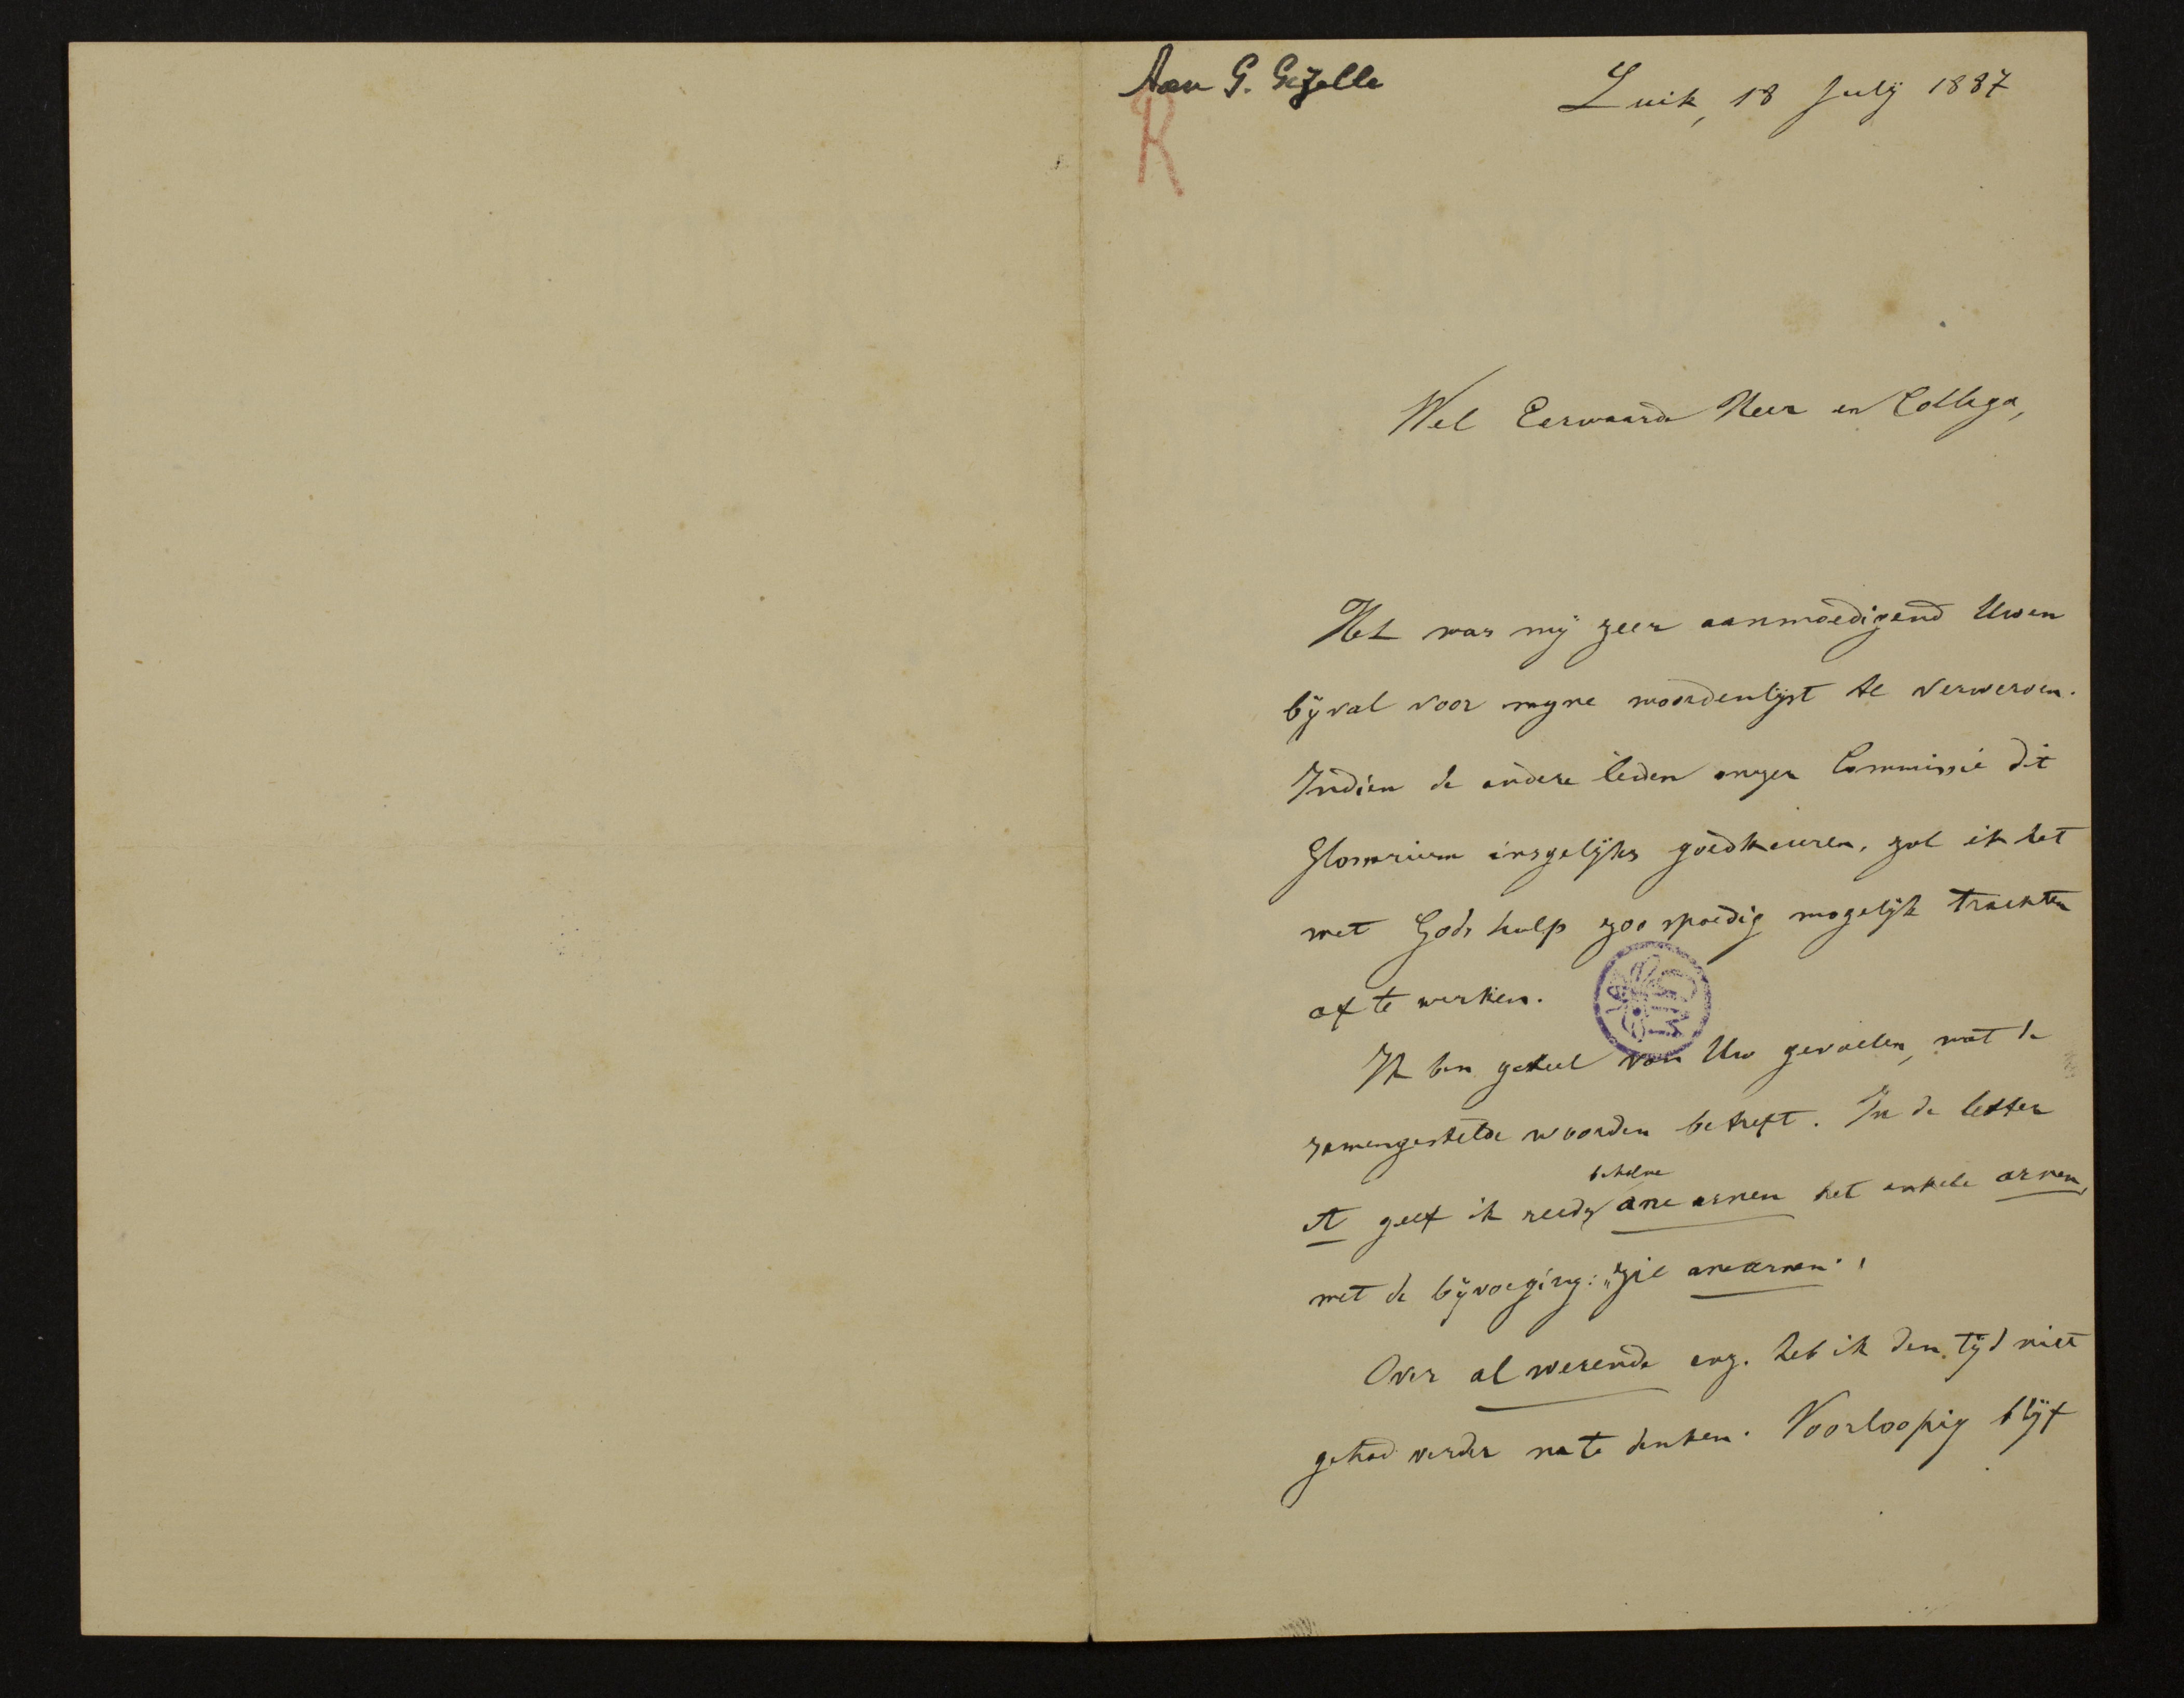 Aan G. Gezelle
R
Luik, 18 July 1887
Wel Eerwaarde Heer en Collega,
Het was mij zeer aanmoedigend Uwen
bijval voor mijne woordenlijst te verwerven.
Indien de andere leden onzer Commissie dit
Glossarium insgelijks goedkeuren, zal ik het
met Gods hulp zoo spoedig mogelijk trachten
af te werken.
Ik ben geheel van Uw gevoelen, wat de
zamengestelde woorden betreft. In de letter
behalve
A geef ik reeds ane arnen het enkele arnen,
met de bijvoeging: "zie anearnen".
Over al werende enz. heb ik den tijd niet
gehad verder na te denken. Voorloopig blijf